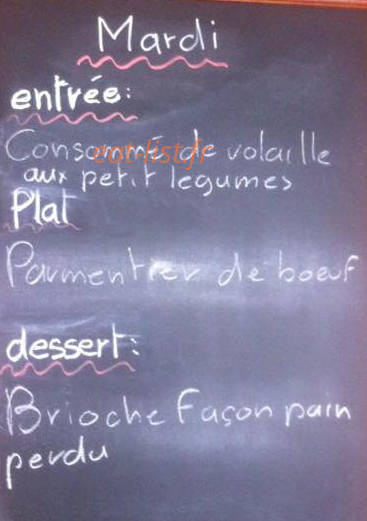 Mardi
entrée:
Consommé de volaille
aux petit legumes
Plat
Parmentier de boeuf
dessert:
Brioche façon pain
perdu
eat-list.fr